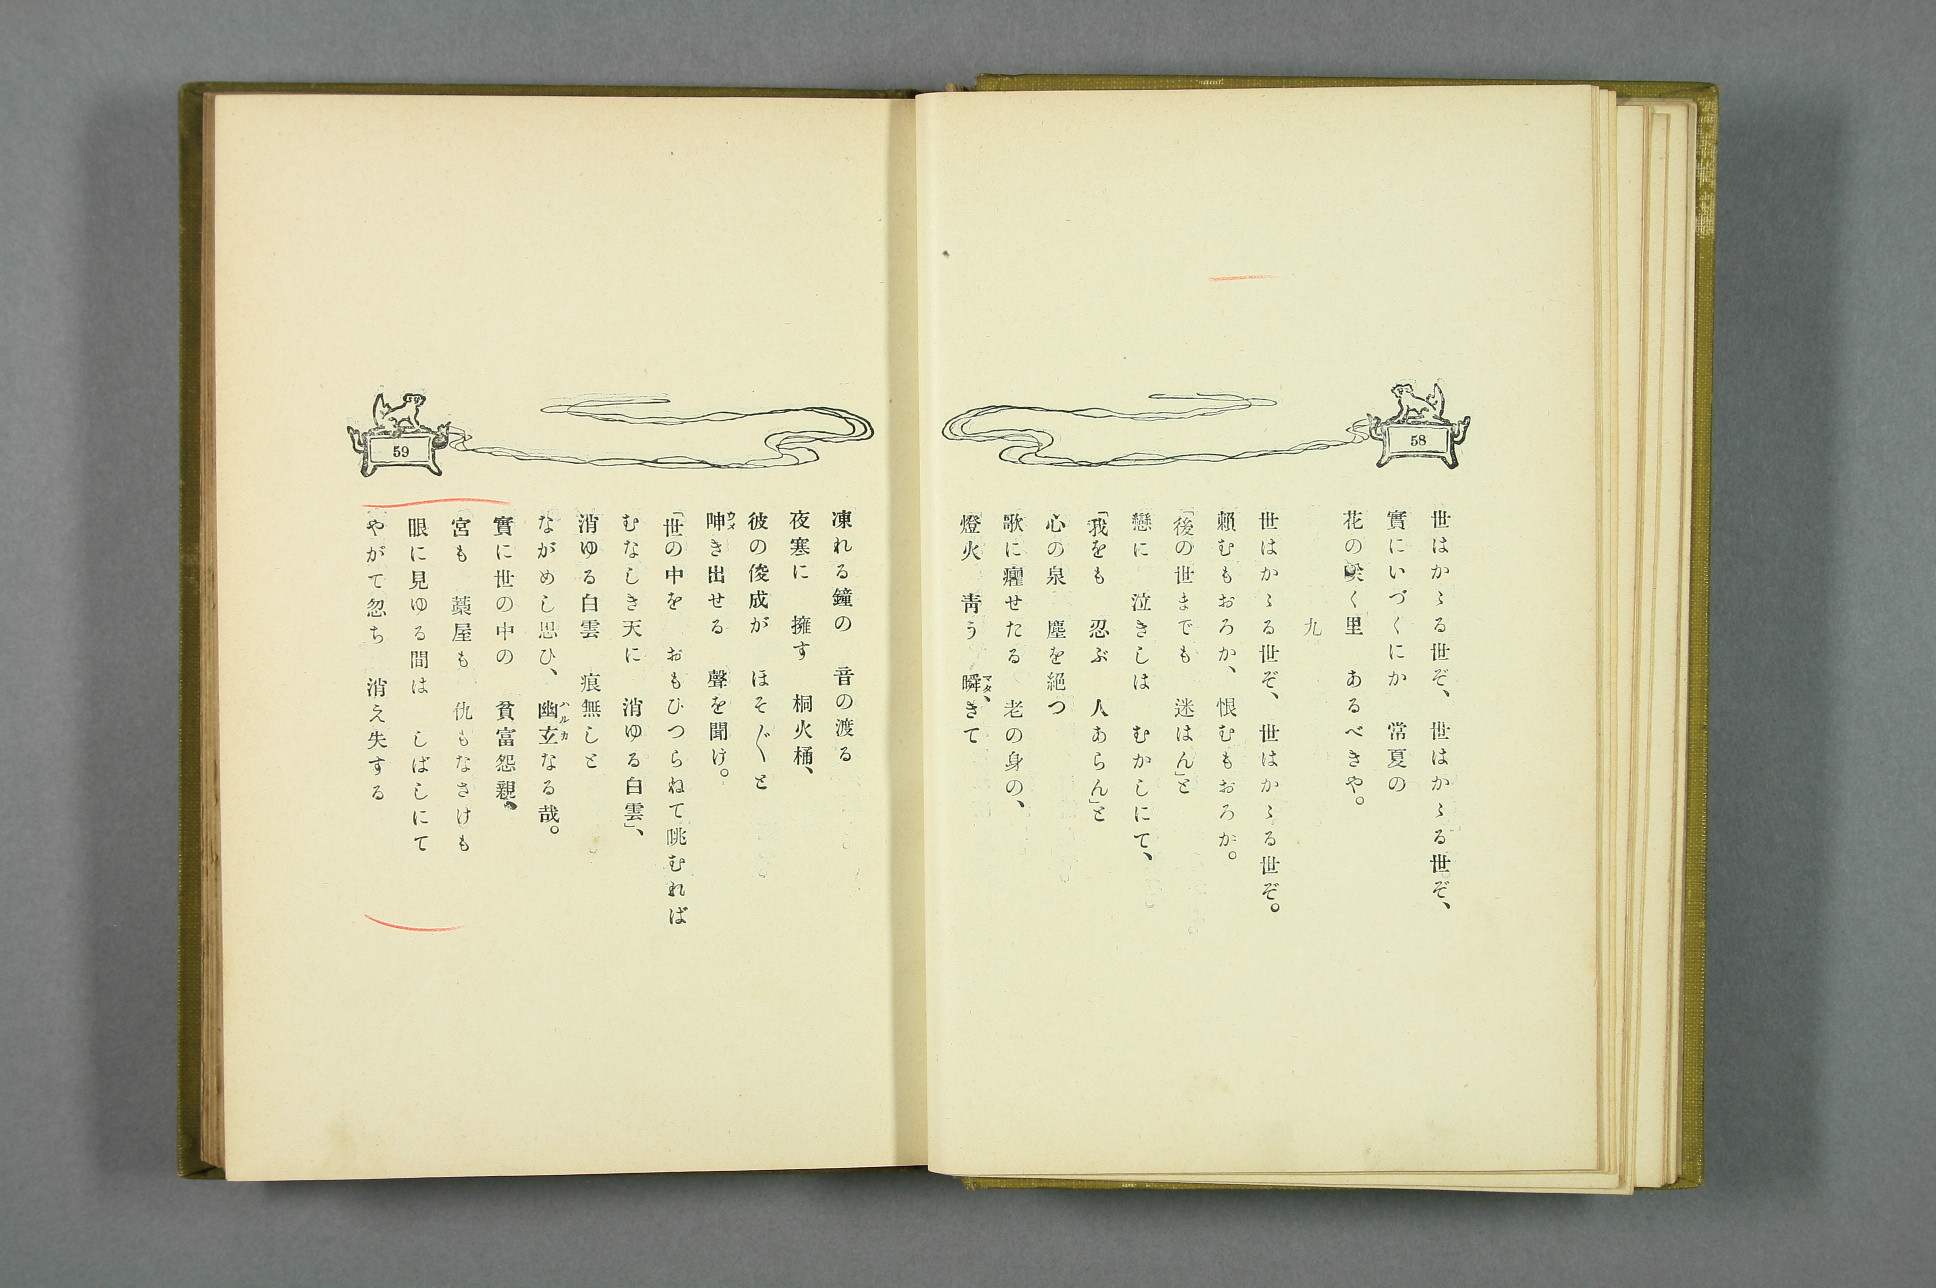 58
世はかゝる世ぞ、世はかゝる世ぞ、
實にいづくにか　常夏の
花の咲く里　あるべきや。
九
世はかゝる世ぞ、世はかゝる世ぞ。
賴むもおろか、恨むもおろか。
「後の世までも　迷はん」と
戀に　泣きしは　むかしにて、
「我をも　忍ぶ　人あらん」と
心の泉　塵を絕つ
歌に癯せたる　老の身の、
燈火　靑う　瞬きて
マタ、
59
凍れる鐘の　音の渡る
夜寒に　擁す　桐火桶、
彼の俊成が　ほそ〴〵と
呻き出せる　聲を聞け。
ウメ
「世の中を　おもひつらねて眺むれば
むなしき天に　消ゆる白雲」、
消ゆる白雲　痕無しと
ながめし思ひ、幽玄なる哉。
ハルカ
實に世の中の　貧富怨親、
宮も　藁屋も　仇もなさけも
眼に見ゆる間は　しばしにて
やがて忽ち　消え失する